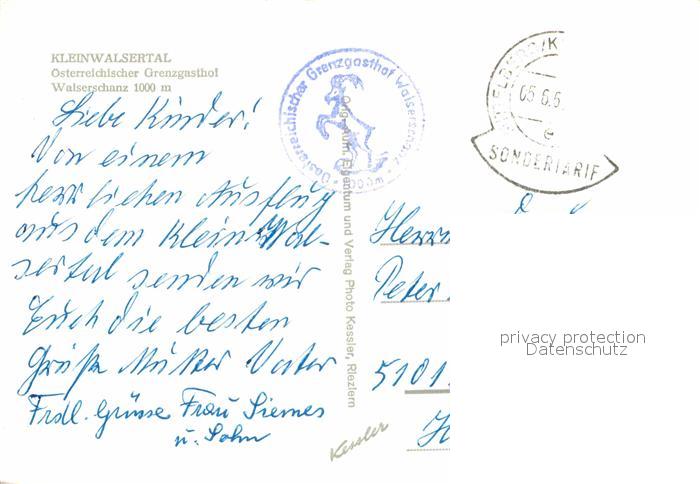 KLEINWALSERTAL
Österreichischer Grenzgasthof
Walserschanz 1000 m
Liebe Kinder!
Von einem
herrlichen Ausflug
aus dem Kleinwal-
sertal senden wir
Euch die besten
Grüße Mutter Vater
Frdl. Grüsse Frau Siemes
u. Sohn
Österreichischer Grenzgasthof Walserschanz
1000 m
Orig.-Aufn. Eigentum und Verlag Photo Kessler, Riezlern
Kessler
05.6.6
e
SONDERTARIF
Herrn
Peter
5101
privacy protection
Datenschutz